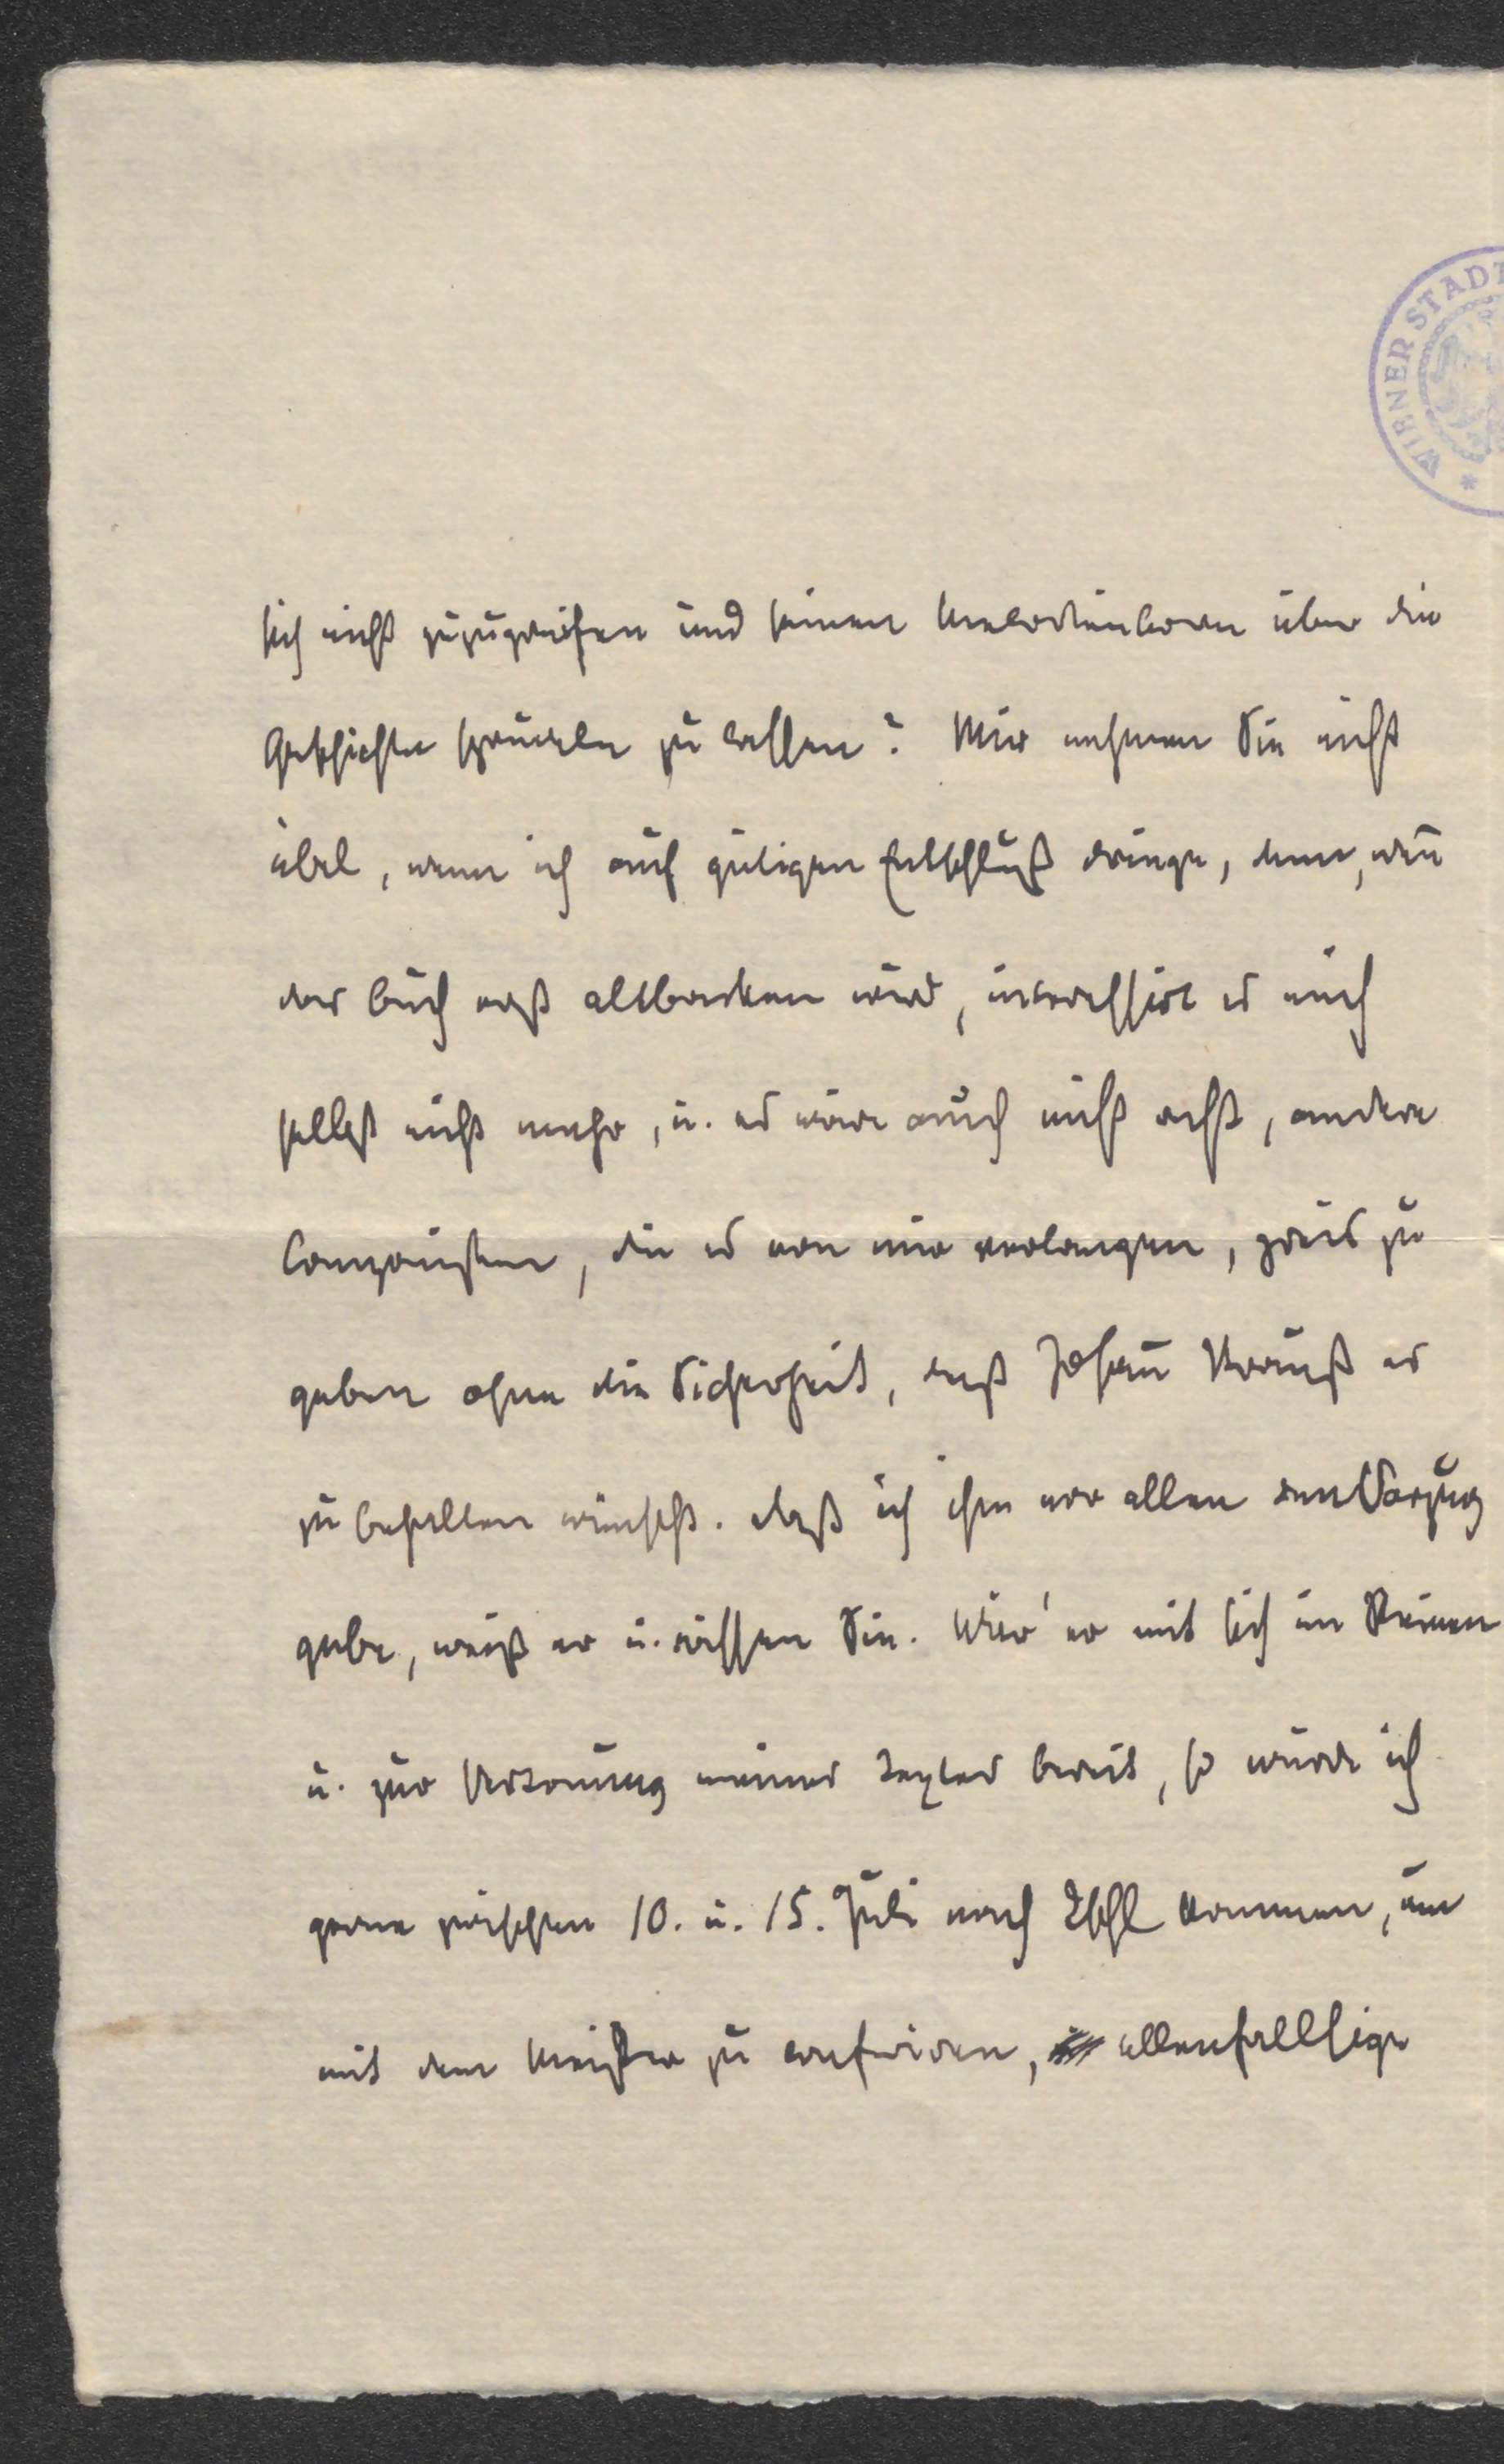 WIENER STADT
sich nicht zuzugreifen und seinen Melodienborn über die
Geschichte sprudeln zu lassen? Mir nehmen Sie nicht
übel, wenn ich auf gütigen Entschluß dringe, denn, wen̄
das Buch erst altbacken wird, interessirt es mich
selbst nicht mehr, u. es wäre auch nicht recht, andere
Componisten, die es von mir verlangen, preis zu
geben ohne die Sicherheit, daß Johan̄ Strauß es
zu behalten wünscht. Daß ich ihm vor allen den Vorzug
gebe, weiß er u. wissen Sie. Wär' er mit sich im Reinen
u. zur Vertonung meines Textes bereit, so würde ich
gerne zwischen 10. u. 15. Juli nach Ischl kommen, um
mit dem Meister zu conferiren, allenfallsige